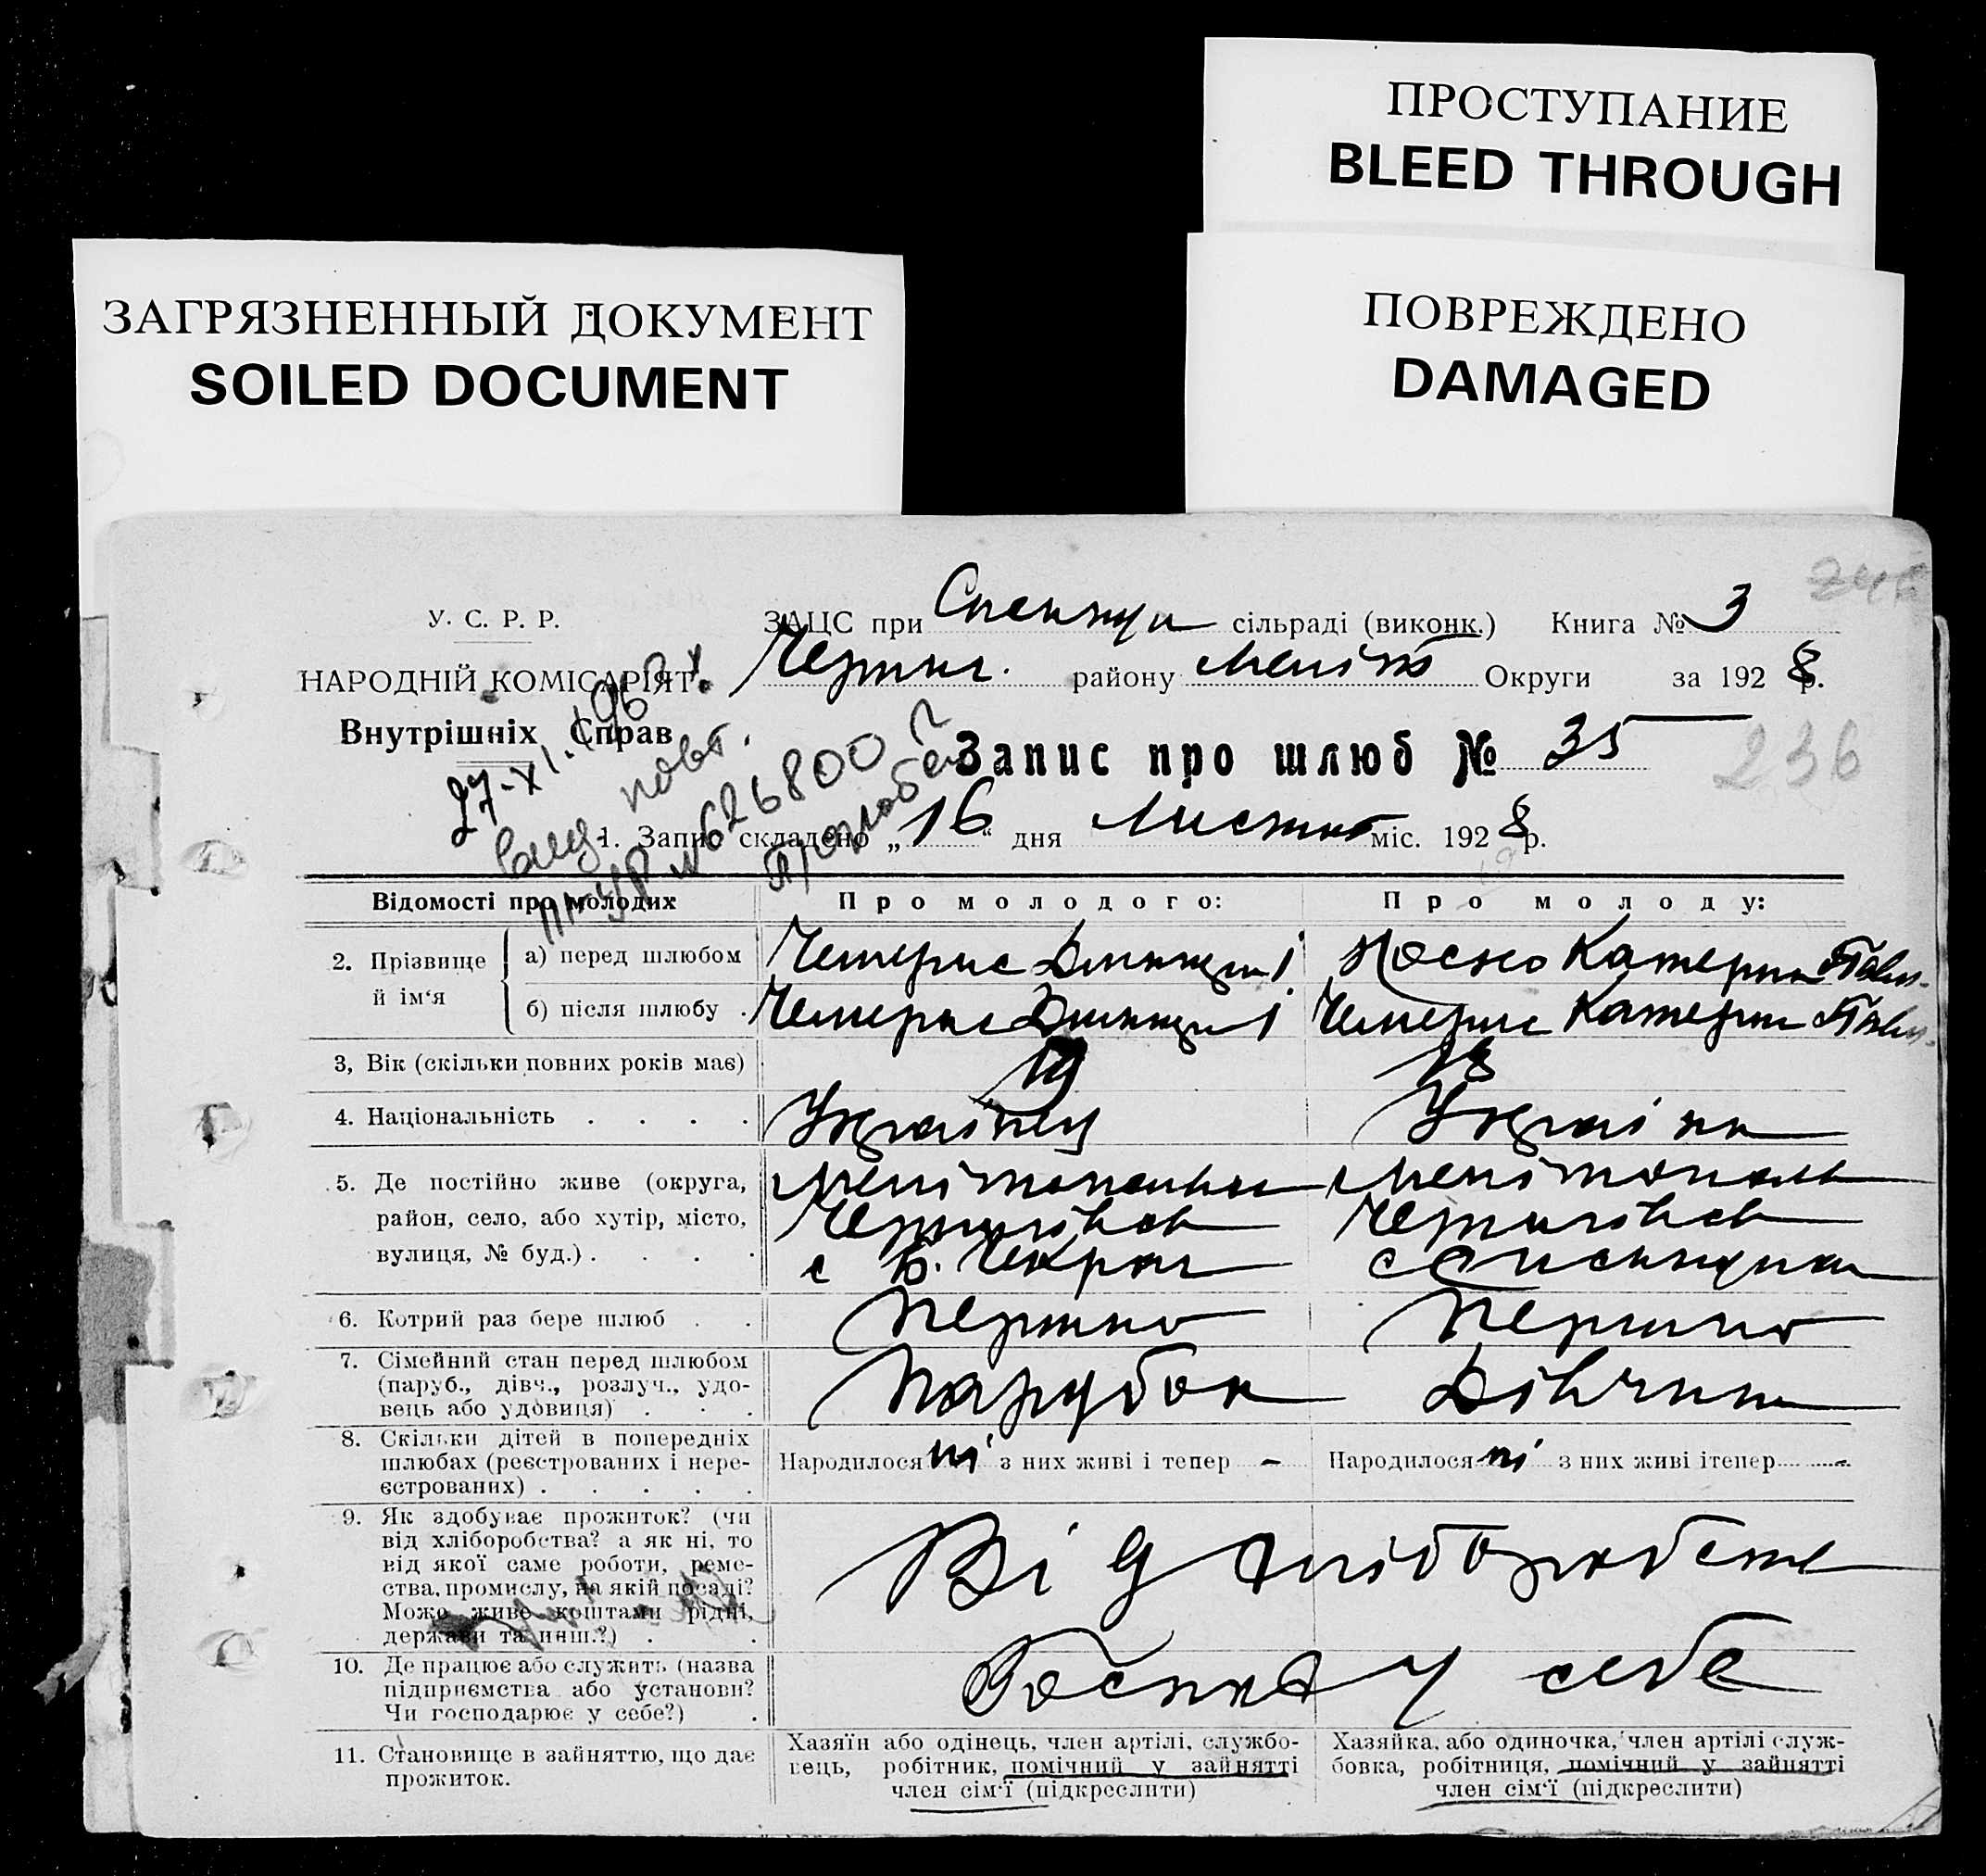 ПРОСТУПАНИЕ
BLEED THROUGH
ЗАГРЯЗНЕННЫЙ ДОКУМЕНТ
SOILED DOCUMENT
ПОВРЕЖДЕНО
DAMAGED
У. С. Р. Р.
НАРОДНІЙ КОМІСАРІЯТ
Внутрішніх Справ
ЗАЦС при сільраді (виконк.) Книга № 3
Черниг. району Меліт Округи за 1928 р.
Запис про шлюб № 35
236
27-XI-196
повт.
№ 626800
1. Запис складено „16“ дня Листоп міс. 1928 р.
Відомості про молодих Про молодого: Про молоду:
2. Прізвище й ім‘я
а) перед шлюбом Чемерис Дмитрий Носко Катерина Павл.
б) після шлюбу Чемерис Дмитрий Чемерис Катерина Павл.
3, Вік (скільки повних років має) 19 18
4. Національність . . . . Українец Українка
5. Де постійно живе (округа, район, село, або хутір, місто, вулиця, № буд.) . . . .
Мелітопольськ Мелітополь
Чернигівсь Чернигівсь
с Б. Чекрак с
6. Котрий раз бере шлюб . . Перший Перший
7. Сімейний стан перед шлюбом (паруб., дівч., розлуч., удовець або удовиця) . . . Парубок Дівчина
8. Скільки дітей в попередніх шлюбах (реєстрованих і нереєстрованих) . . . . .
Народилося ні з них живі і тепер - Народилося ні з них живі ітепер -
9. Як здобуває прожиток? (чи від хліборобства? а як ні, то від якої саме роботи, ремества, промислу, на якій посаді? Може живе коштами рідні, держави та инш.?) . .
Від хліборобства
10. Де працює або служить (назва підприємства або установи? Чи господарює у себе?) .
у себе
11. Становище в зайняттю, що дає прожиток.
Хазяїн або одінець, член артілі, службовець, робітник, помічний у зайнятті член сім‘ї (підкреслити)
Хазяйка, або одиночка, член артілі службовка, робітниця, помічний у зайнятті член сім‘ї (підкреслити)